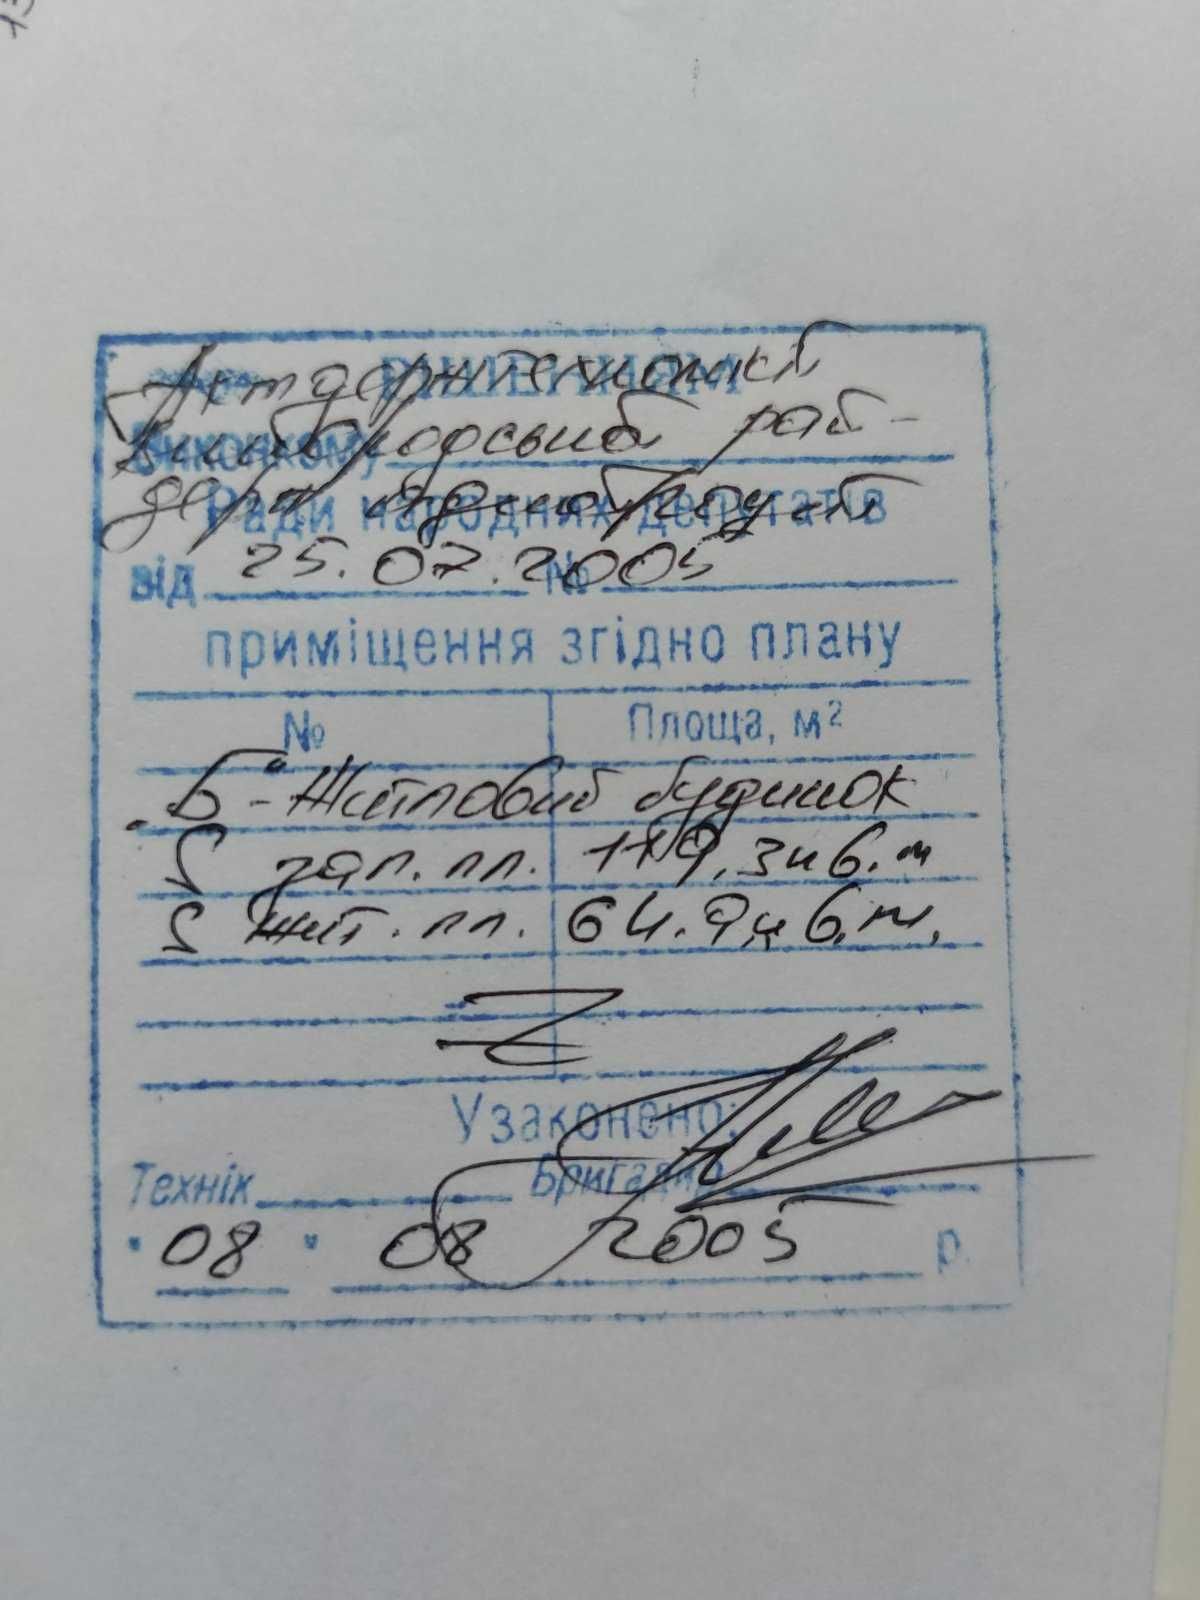 Акт держтехкомісії
РІШЕННЯМ
Виконкому
рай-
держ
Ради народних депутатів
від 25.07.2005 №
приміщення згідно плану
№ Площа, м²
„Б“ - Житловий будинок
S заг. пл. 119,3 кв. м
S жит. пл. 64.9 кв. м.
Узаконено:
Технік Бригадир
"08" 08 2005 р.